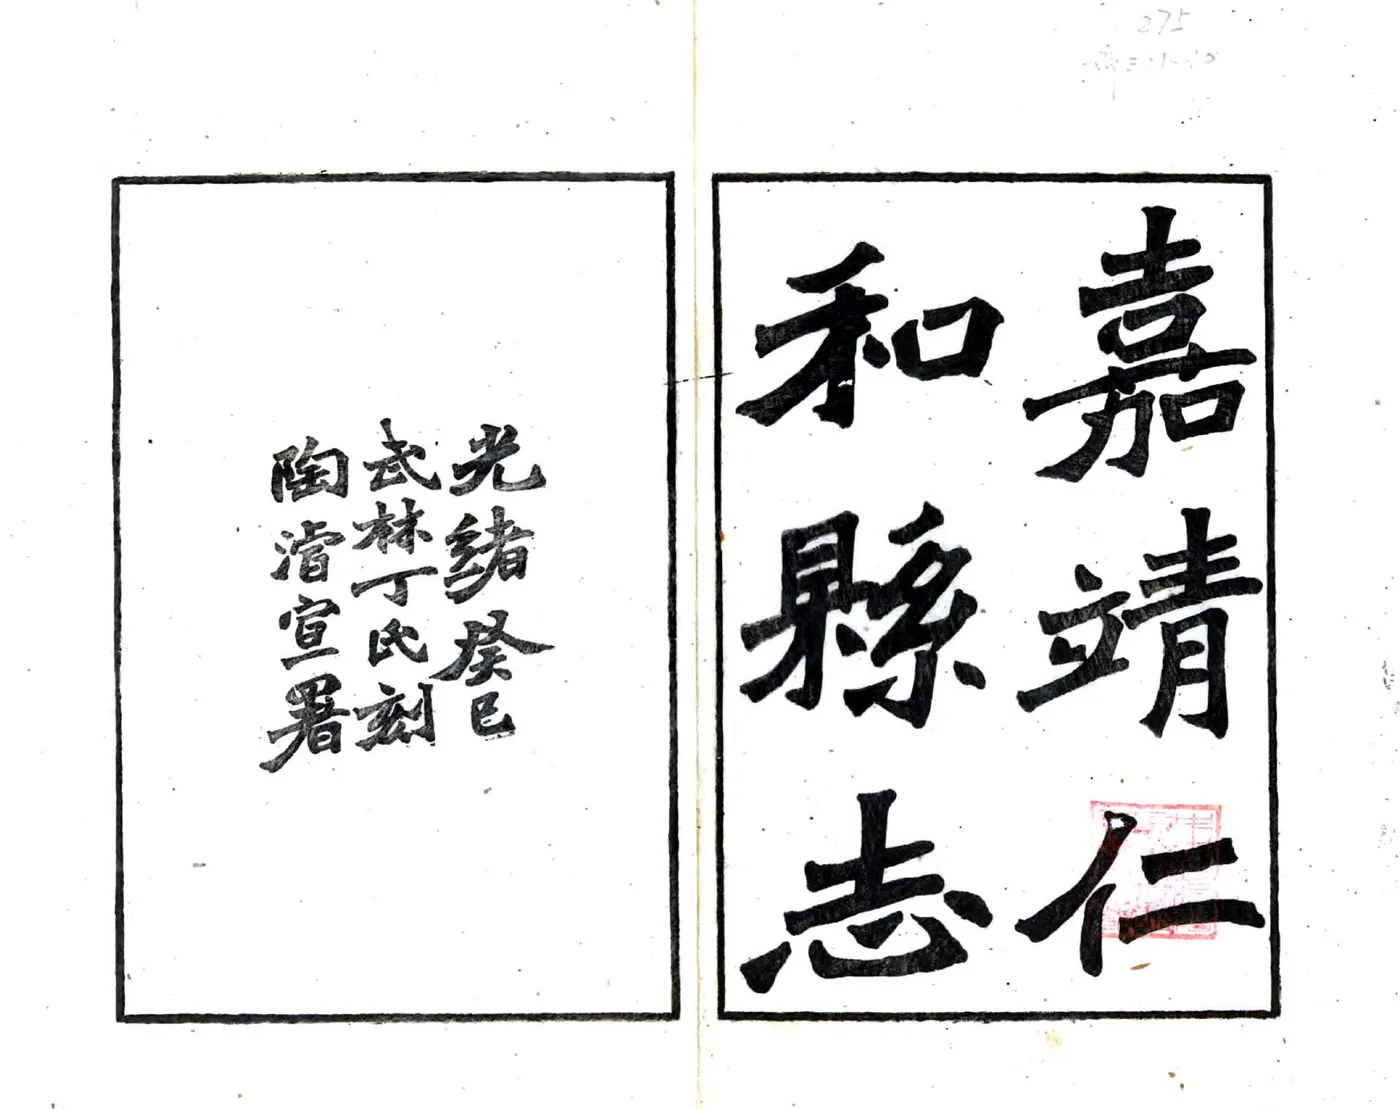 嘉靖仁
和縣志
光緒癸巳
武林丁氏刻
陶濬宣署
275